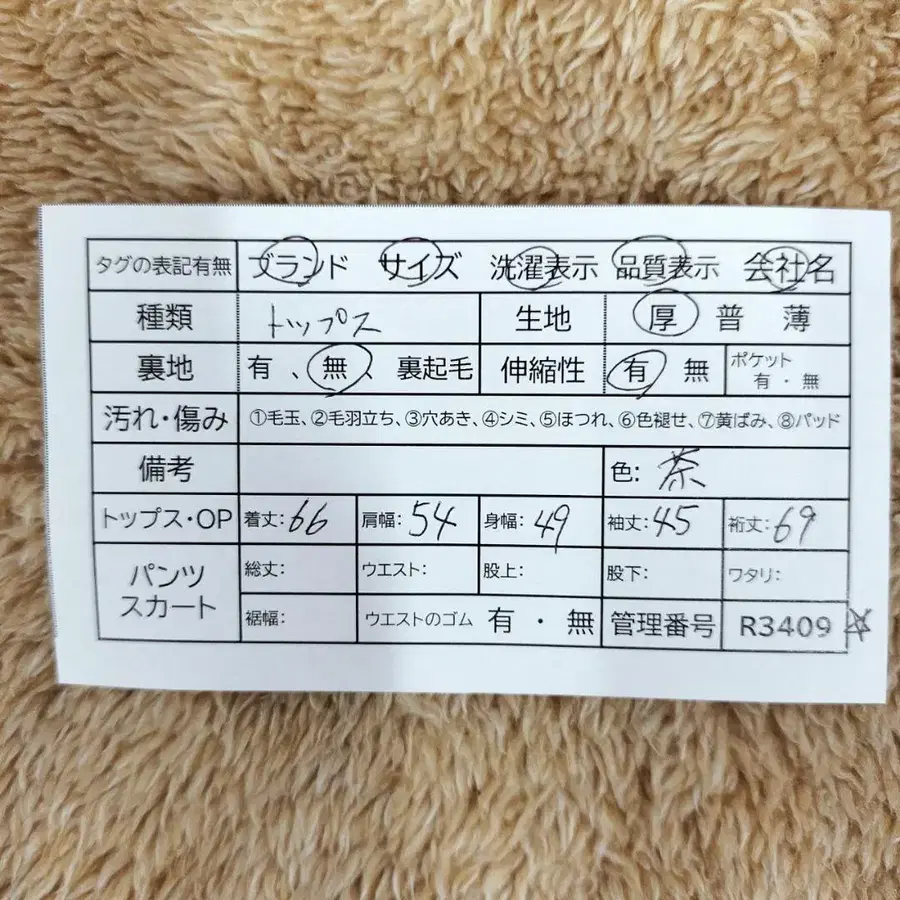 タグの表記有無 ブランド サイズ 洗濯表示 品質表示 会社名
種類 トップス 生地 厚 普 薄
裏地 有 、 無 、 裏起毛 伸縮性 有 無 ポケット 有 ・ 無
汚れ・傷み ①毛玉、②毛羽立ち、③穴あき、④シミ、⑤ほつれ、⑥色褪せ、⑦黄ばみ、⑧パッド
備考 色: 茶
トップス・OP 着丈: 66 肩幅: 54 身幅: 49 袖丈: 45 裄丈: 69
パンツ スカート 総丈: ウエスト: 股上: 股下: ワタリ:
裾幅: ウエストのゴム 有 ・ 無 管理番号 R3409 ☆